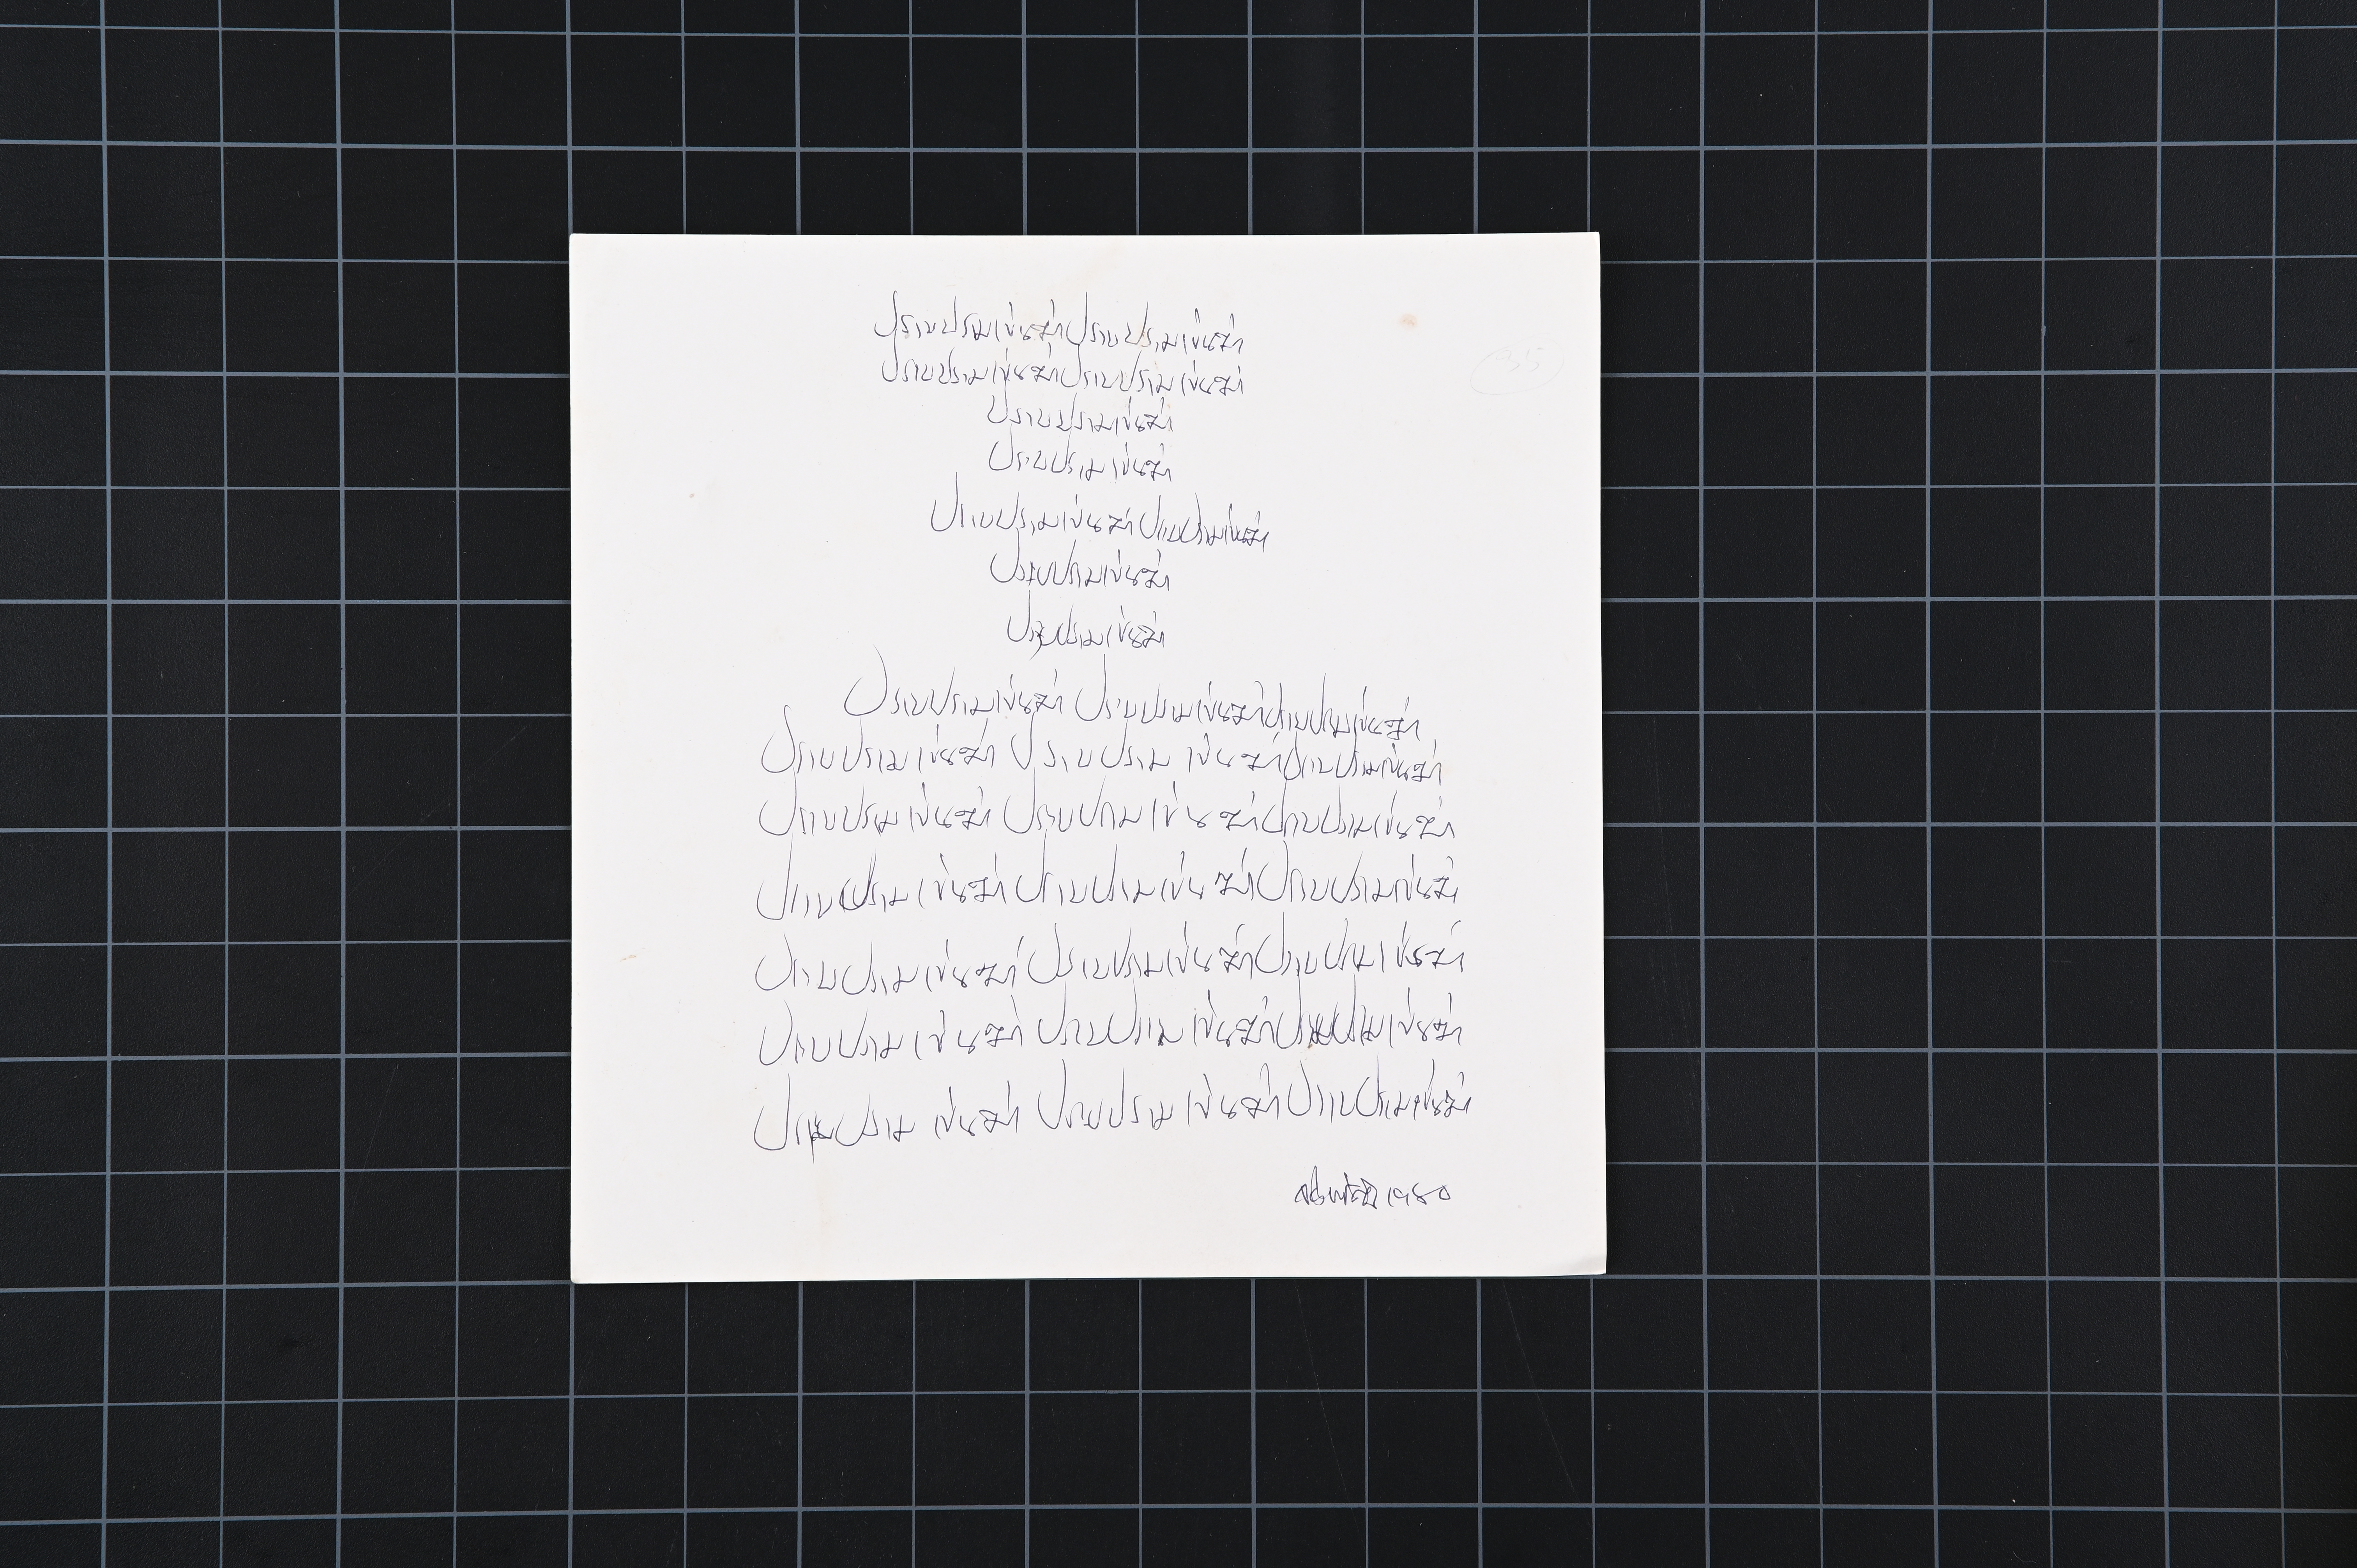 ปราบปรามเข่นฆ่าปราบปรามเข่นฆ่า
ปราบปรามเข่นฆ่าปราบปรามเข่นฆ่า
ปราบปรามเข่นฆ่า
ปราบปรามเข่นฆ่า
ปราบปรามเข่นฆ่าปราบปรามเข่นฆ่า
ปราบปรามเข่นฆ่า
ปราบปรามเข่นฆ่า
ปราบปรามเข่นฆ่า ปราบปรามเข่นฆ่าปราบปรามเข่นฆ่า
ปราบปรามเข่นฆ่า ปราบปรามเข่นฆ่าปราบปรามเข่นฆ่า
ปราบปรามเข่นฆ่า ปราบปรามเข่นฆ่าปราบปรามเข่นฆ่า
ปราบปรามเข่นฆ่า ปราบปรามเข่นฆ่าปราบปรามเข่นฆ่า
ปราบปรามเข่นฆ่า ปราบปรามเข่นฆ่าปราบปรามเข่นฆ่า
ปราบปรามเข่นฆ่า ปราบปรามเข่นฆ่าปราบปรามเข่นฆ่า
ปราบปรามเข่นฆ่า ปราบปรามเข่นฆ่าปราบปรามเข่นฆ่า
1980